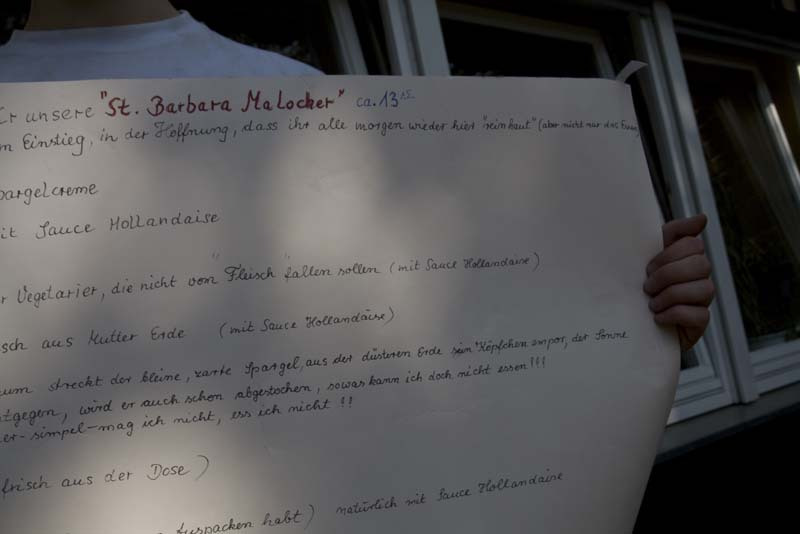 unsere "St. Barbara Malocher" ca. 13
Einstieg, in der Hoffnung, dass ihr alle morgen wieder hier "reinhaut" (aber nicht nur das Essen)
pargelcreme
it Sauce Hollandaise
r Vegetarier, die nicht vom "Fleisch" fallen sollen (mit Sauce Hollandaise)
sch aus Mutter Erde (mit Sauce Hollandaise)
um streckt der kleine, zarte Spargel, aus der düsteren Erde sein Köpfchen empor, der Sonne
tgegen, wird er auch schon abgestochen, sowas kann ich doch nicht essen!!!
er-simpel-mag ich nicht, ess ich nicht!!
frisch aus der Dose)
Auspacken habt) natürlich mit Sauce Hollandaise